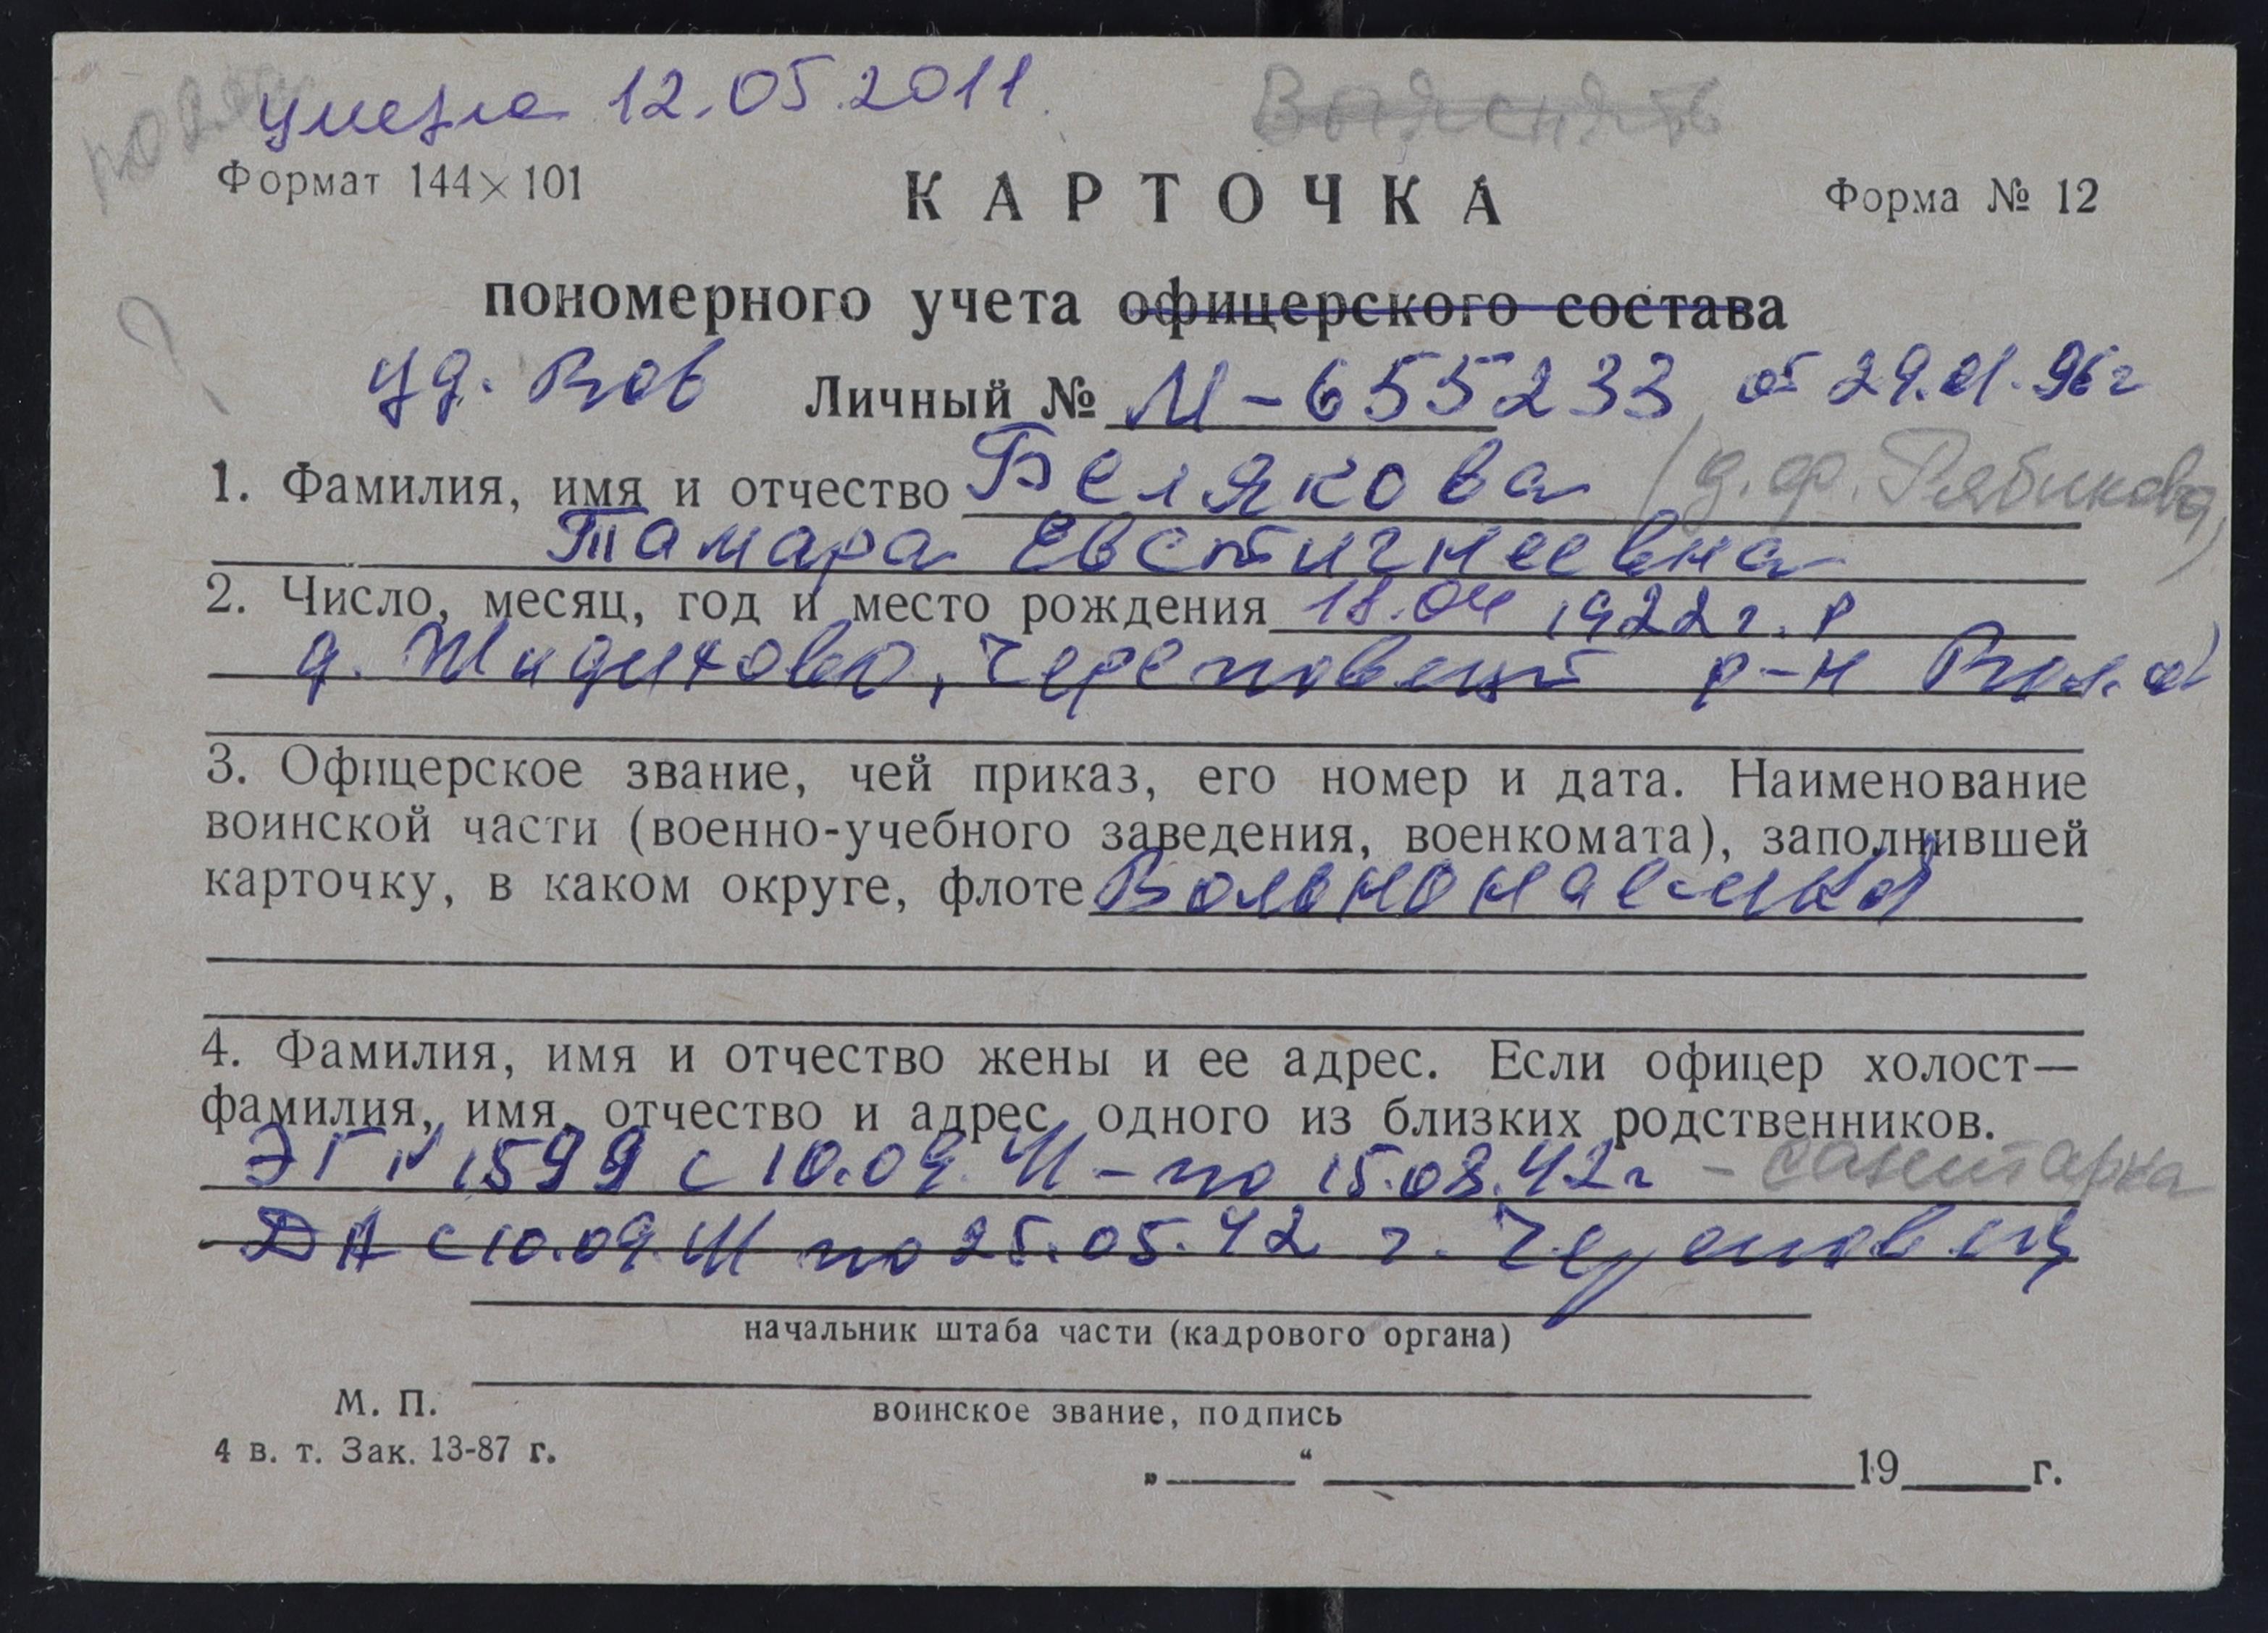 умерла 12.05.2011
Выяснять
Формат 144×101
КАРТОЧКА
Форма № 12
пономерного учета офицерского состава
?
уд. ВОВ Личный № М-655233 от 29.01.96г
1. Фамилия, имя и отчество Белякова (д.ф. Рябикова)
Тамара Евстигнеевна
2. Число, месяц, год и место рождения 18.04 1922г.р
д. Жидихово, Череповецк р-н Вол. об
3. Офицерское звание, чей приказ, его номер и дата. Наименование
воинской части (военно-учебного заведения, военкомата), заполнившей
карточку, в каком округе, флоте Вольнонаемная
4. Фамилия, имя и отчество жены и ее адрес. Если офицер холост—
фамилия, имя, отчество и адрес одного из близких родственников.
ЭГ № 1599 с 10.09.41 - по 15.08.42г - санитарка
ДА с 10.09.41 по 25.05.42 г. Череповец
начальник штаба части (кадрового органа)
М. П.
воинское звание, подпись
4 в. т. Зак. 13-87 г.
„ “ 19 г.